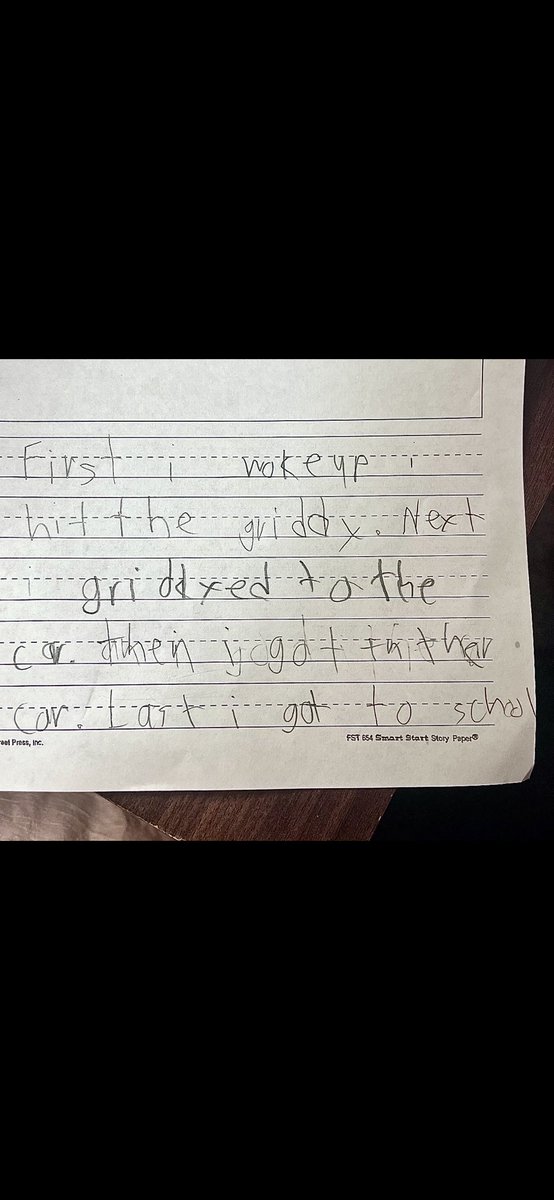 First i woke up i
hit the griddy. Next
i griddyed to the
car. then i got in
car. Last i got to school
reet Press, Inc.
FST 654 Smart Start Story Paper®